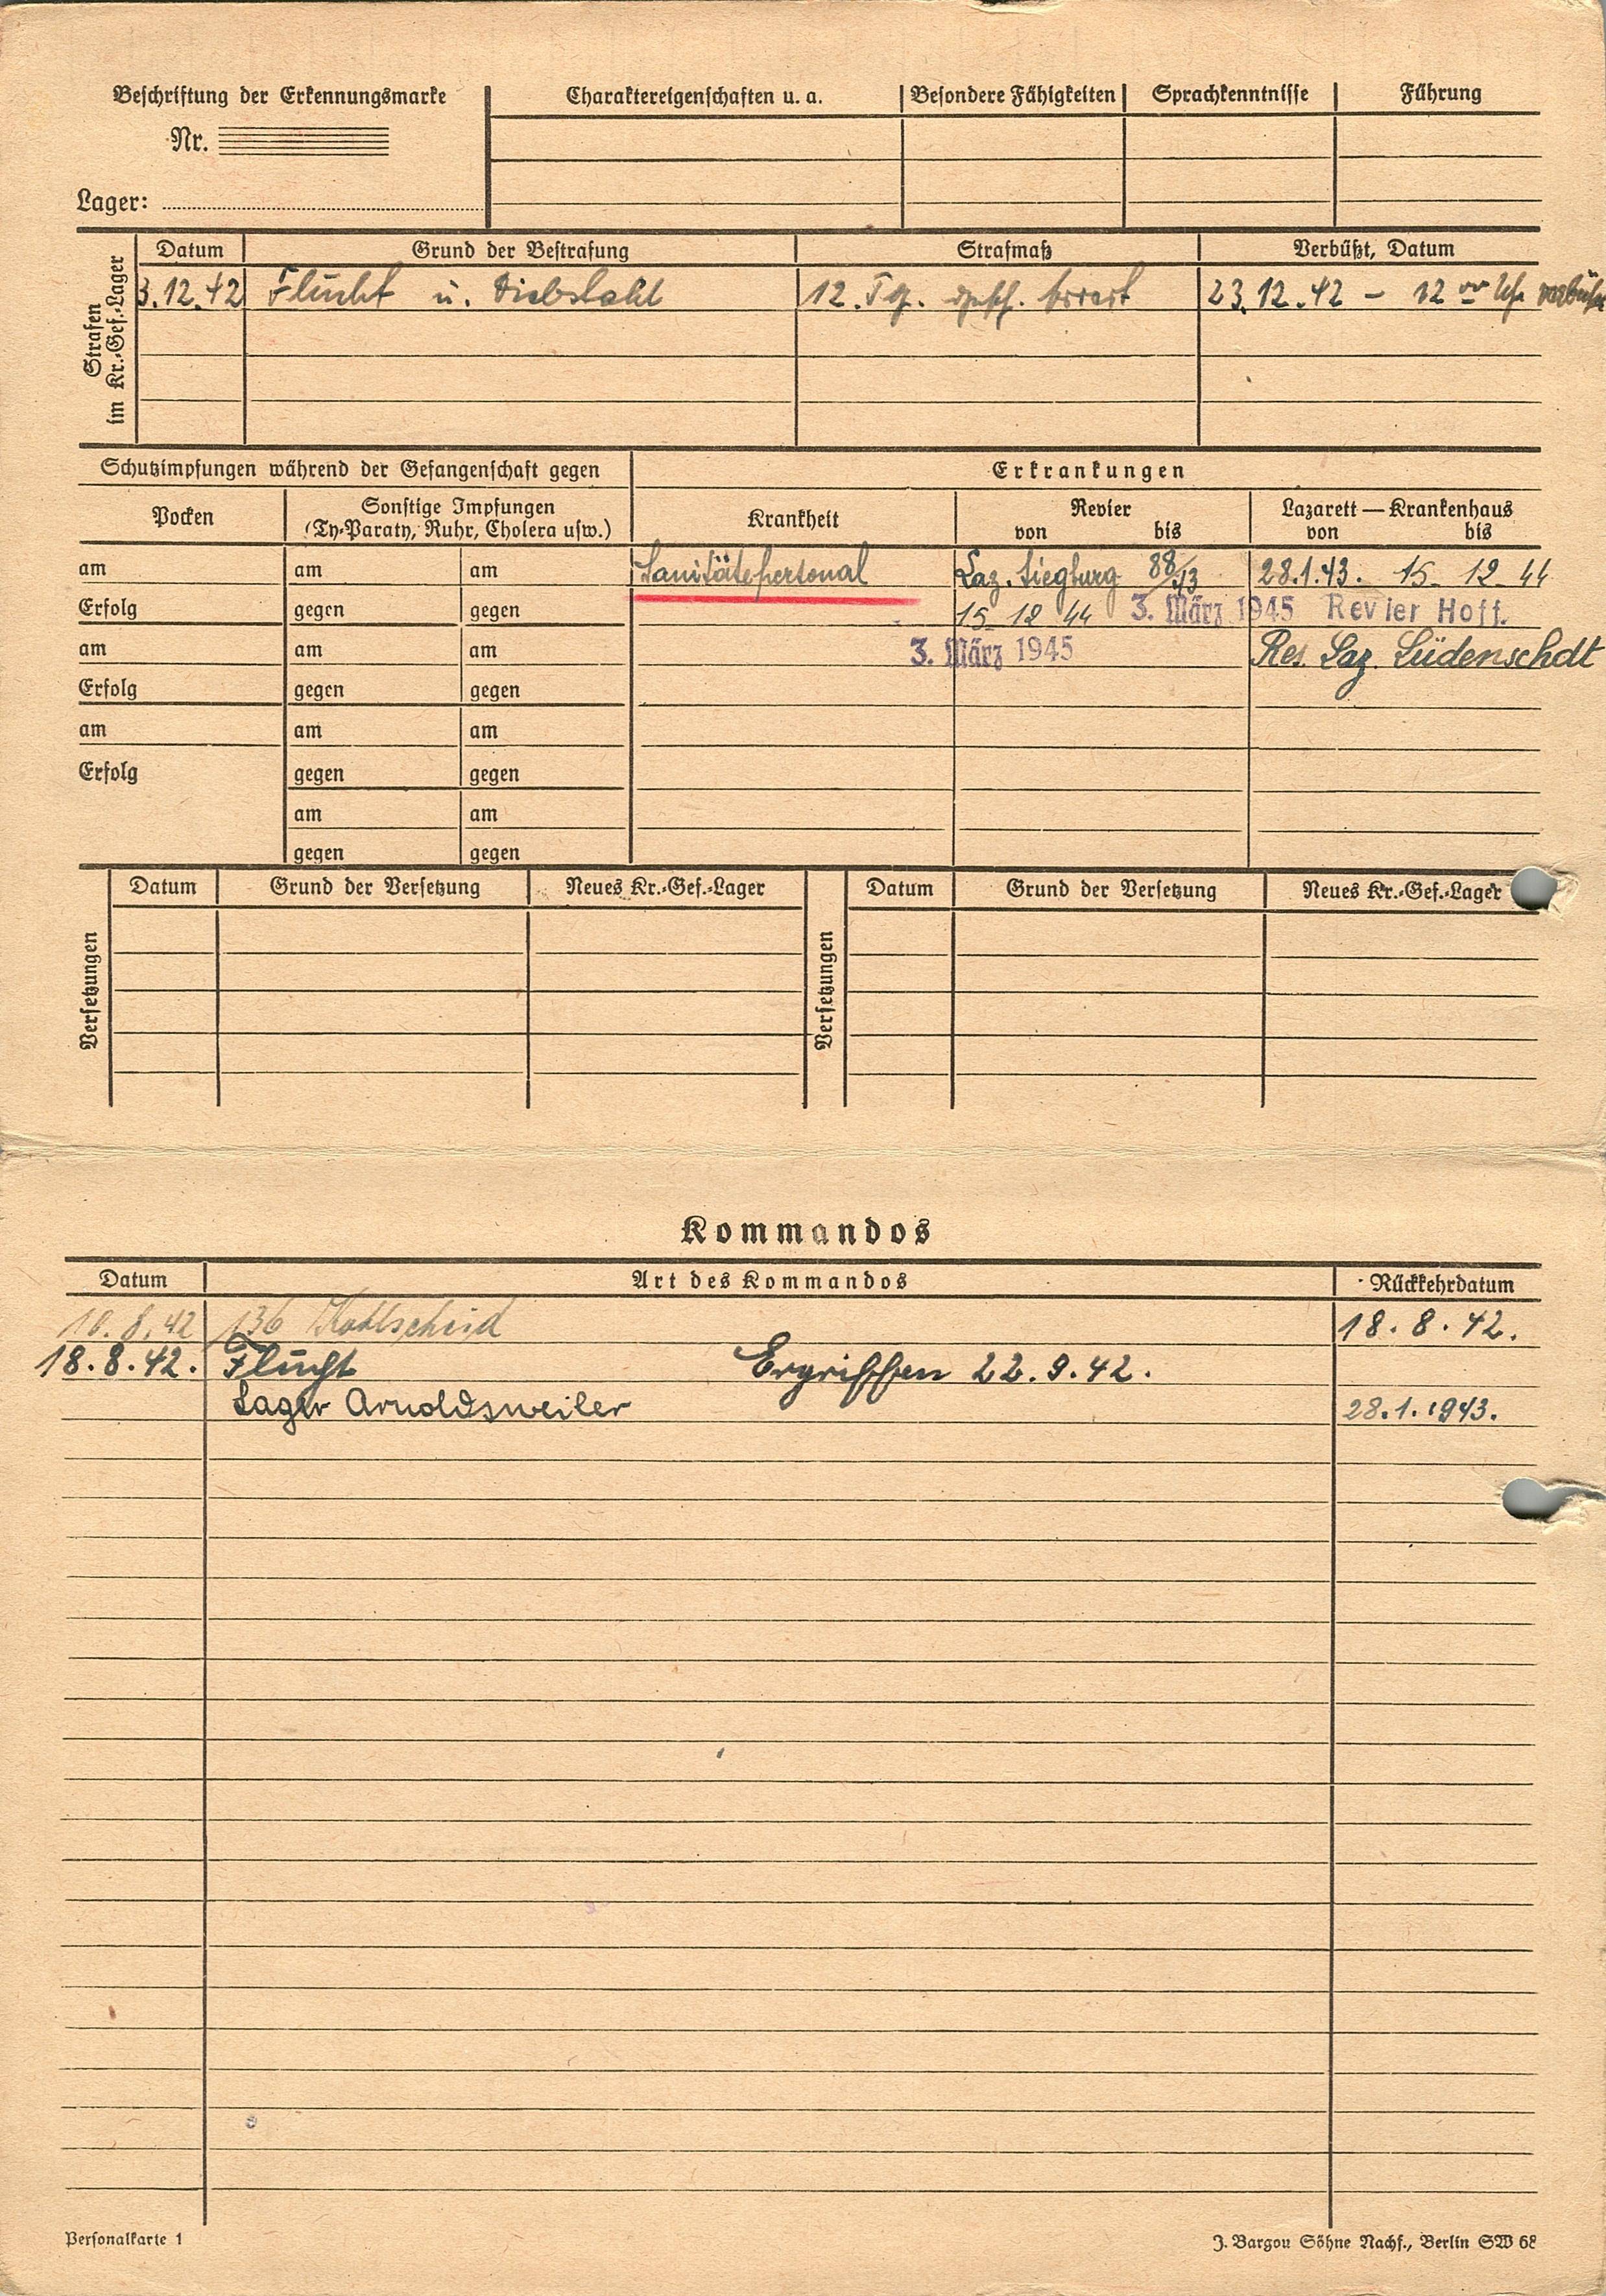 Beschriftung der Erkennungsmarke Charaktereigenschaften u. a. Besondere Fähigkeiten Sprachkenntnisse Führung
Nr.
Lager:
Strafen
im Kr.-Gef.-Lager
Datum Grund der Bestrafung Strafmaß Verbüßt, Datum
3.12.42 Flucht u. Diebstahl 12. Tg. Arrest 23.12.42 – 12 00 Uhr verbüßt
Schutzimpfungen während der Gefangenschaft gegen Erkrankungen
Pocken Sonstige Impfungen Krankheit Revier Lazarett — Krankenhaus
(Ty-Paraty, Ruhr, Cholera usw.) von bis von bis
am am am Sanitätspersonal Laz. Siegburg 88/43 28.1.43. 15-12-44
Erfolg gegen gegen 15-12 44 3. März 1945 Revier Hoff.
am am am 3. März 1945 Res. Laz. Lüdenschdt
Erfolg gegen gegen
am am am
Erfolg gegen gegen
am am
gegen gegen
Versetzungen Datum Grund der Versetzung Neues Kr.-Gef.-Lager Versetzungen Datum Grund der Versetzung Neues Kr.-Gef.-Lager
Kommandos
Datum Art des Kommandos Rückkehrdatum
10.8.42 136 Kohlscheid 18.8.42.
18.8.42. Flucht Ergriffen 22.9.42.
Lager Arnoldsweiler 28.1.1943.
Personalkarte 1 J. Bargou Söhne Nachf., Berlin SW 68